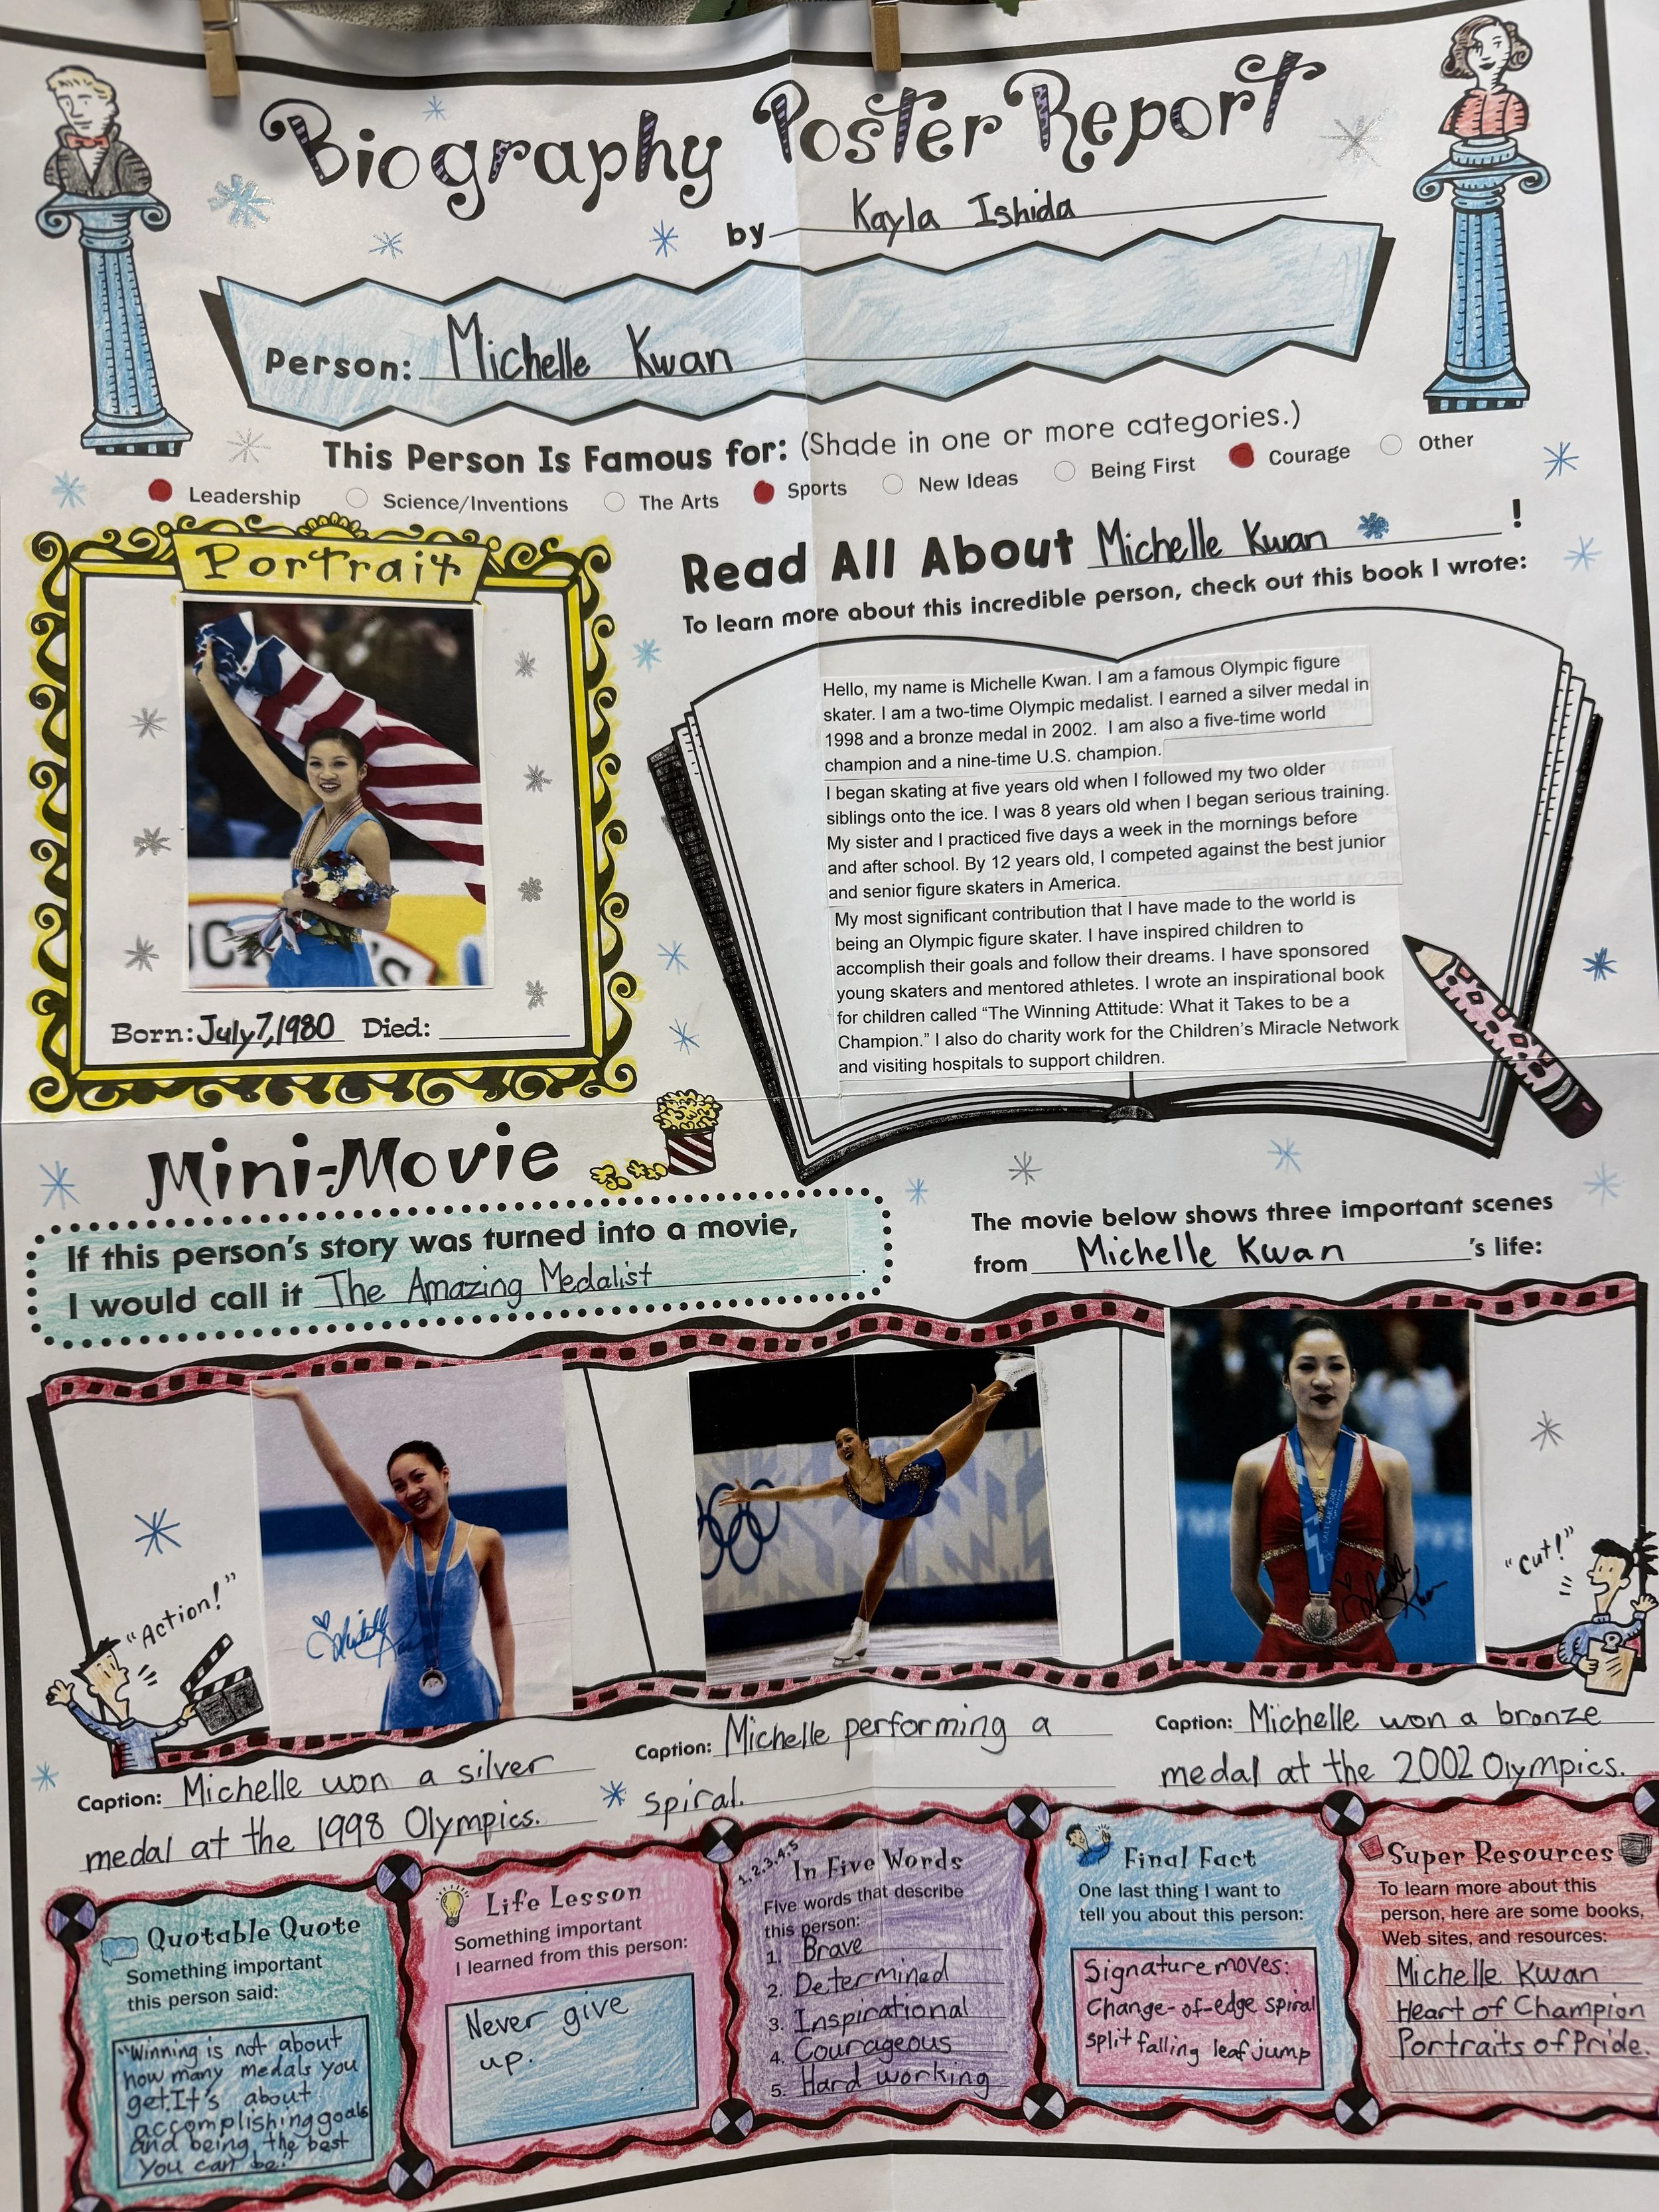 Biography Poster Report
by Kayla Ishida
Person: Michelle Kwan
This Person Is Famous for: (Shade in one or more categories.)
Leadership Science/Inventions The Arts Sports New Ideas Being First Courage Other
Portrait
Born: July 7, 1980 Died:
Read All About Michelle Kwan !
To learn more about this incredible person, check out this book I wrote:
Hello, my name is Michelle Kwan. I am a famous Olympic figure
skater. I am a two-time Olympic medalist. I earned a silver medal in
1998 and a bronze medal in 2002. I am also a five-time world
champion and a nine-time U.S. champion.
I began skating at five years old when I followed my two older
siblings onto the ice. I was 8 years old when I began serious training.
My sister and I practiced five days a week in the mornings before
and after school. By 12 years old, I competed against the best junior
and senior figure skaters in America.
My most significant contribution that I have made to the world is
being an Olympic figure skater. I have inspired children to
accomplish their goals and follow their dreams. I have sponsored
young skaters and mentored athletes. I wrote an inspirational book
for children called “The Winning Attitude: What it Takes to be a
Champion.” I also do charity work for the Children’s Miracle Network
and visiting hospitals to support children.
Mini-Movie
If this person’s story was turned into a movie,
I would call it The Amazing Medalist.
The movie below shows three important scenes
from Michelle Kwan ’s life:
"Action!"
"Cut!"
Caption: Michelle won a silver
medal at the 1998 Olympics.
Caption: Michelle performing a
spiral.
Caption: Michelle won a bronze
medal at the 2002 Olympics.
Quotable Quote
Something important
this person said:
"Winning is not about
how many medals you
get. It's about
accomplishing goals
and being the best
you can be."
Life Lesson
Something important
I learned from this person:
Never give
up.
1, 2, 3, 4, 5
In Five Words
Five words that describe
this person:
1. Brave
2. Determined
3. Inspirational
4. Courageous
5. Hard working
Final Fact
One last thing I want to
tell you about this person:
Signature moves:
Change-of-edge spiral
split falling leaf jump
Super Resources
To learn more about this
person, here are some books,
Web sites, and resources:
Michelle Kwan
Heart of Champion
Portraits of Pride.